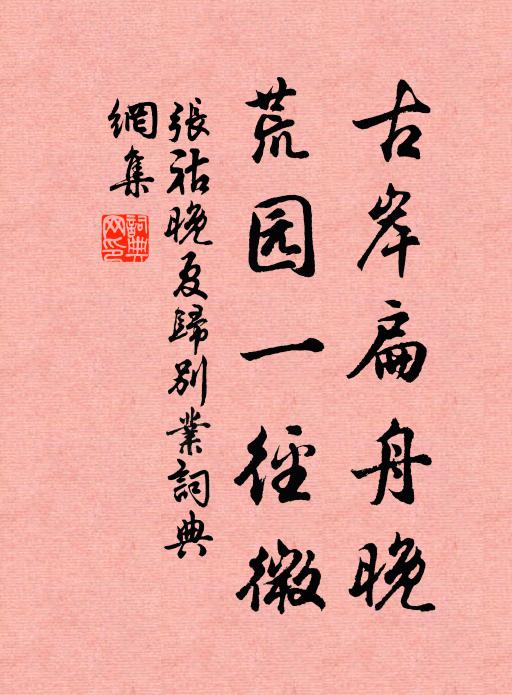 古岸扁舟晚
荒园一徑微
張祜晚夏歸別業詞典
網集
詞典網印